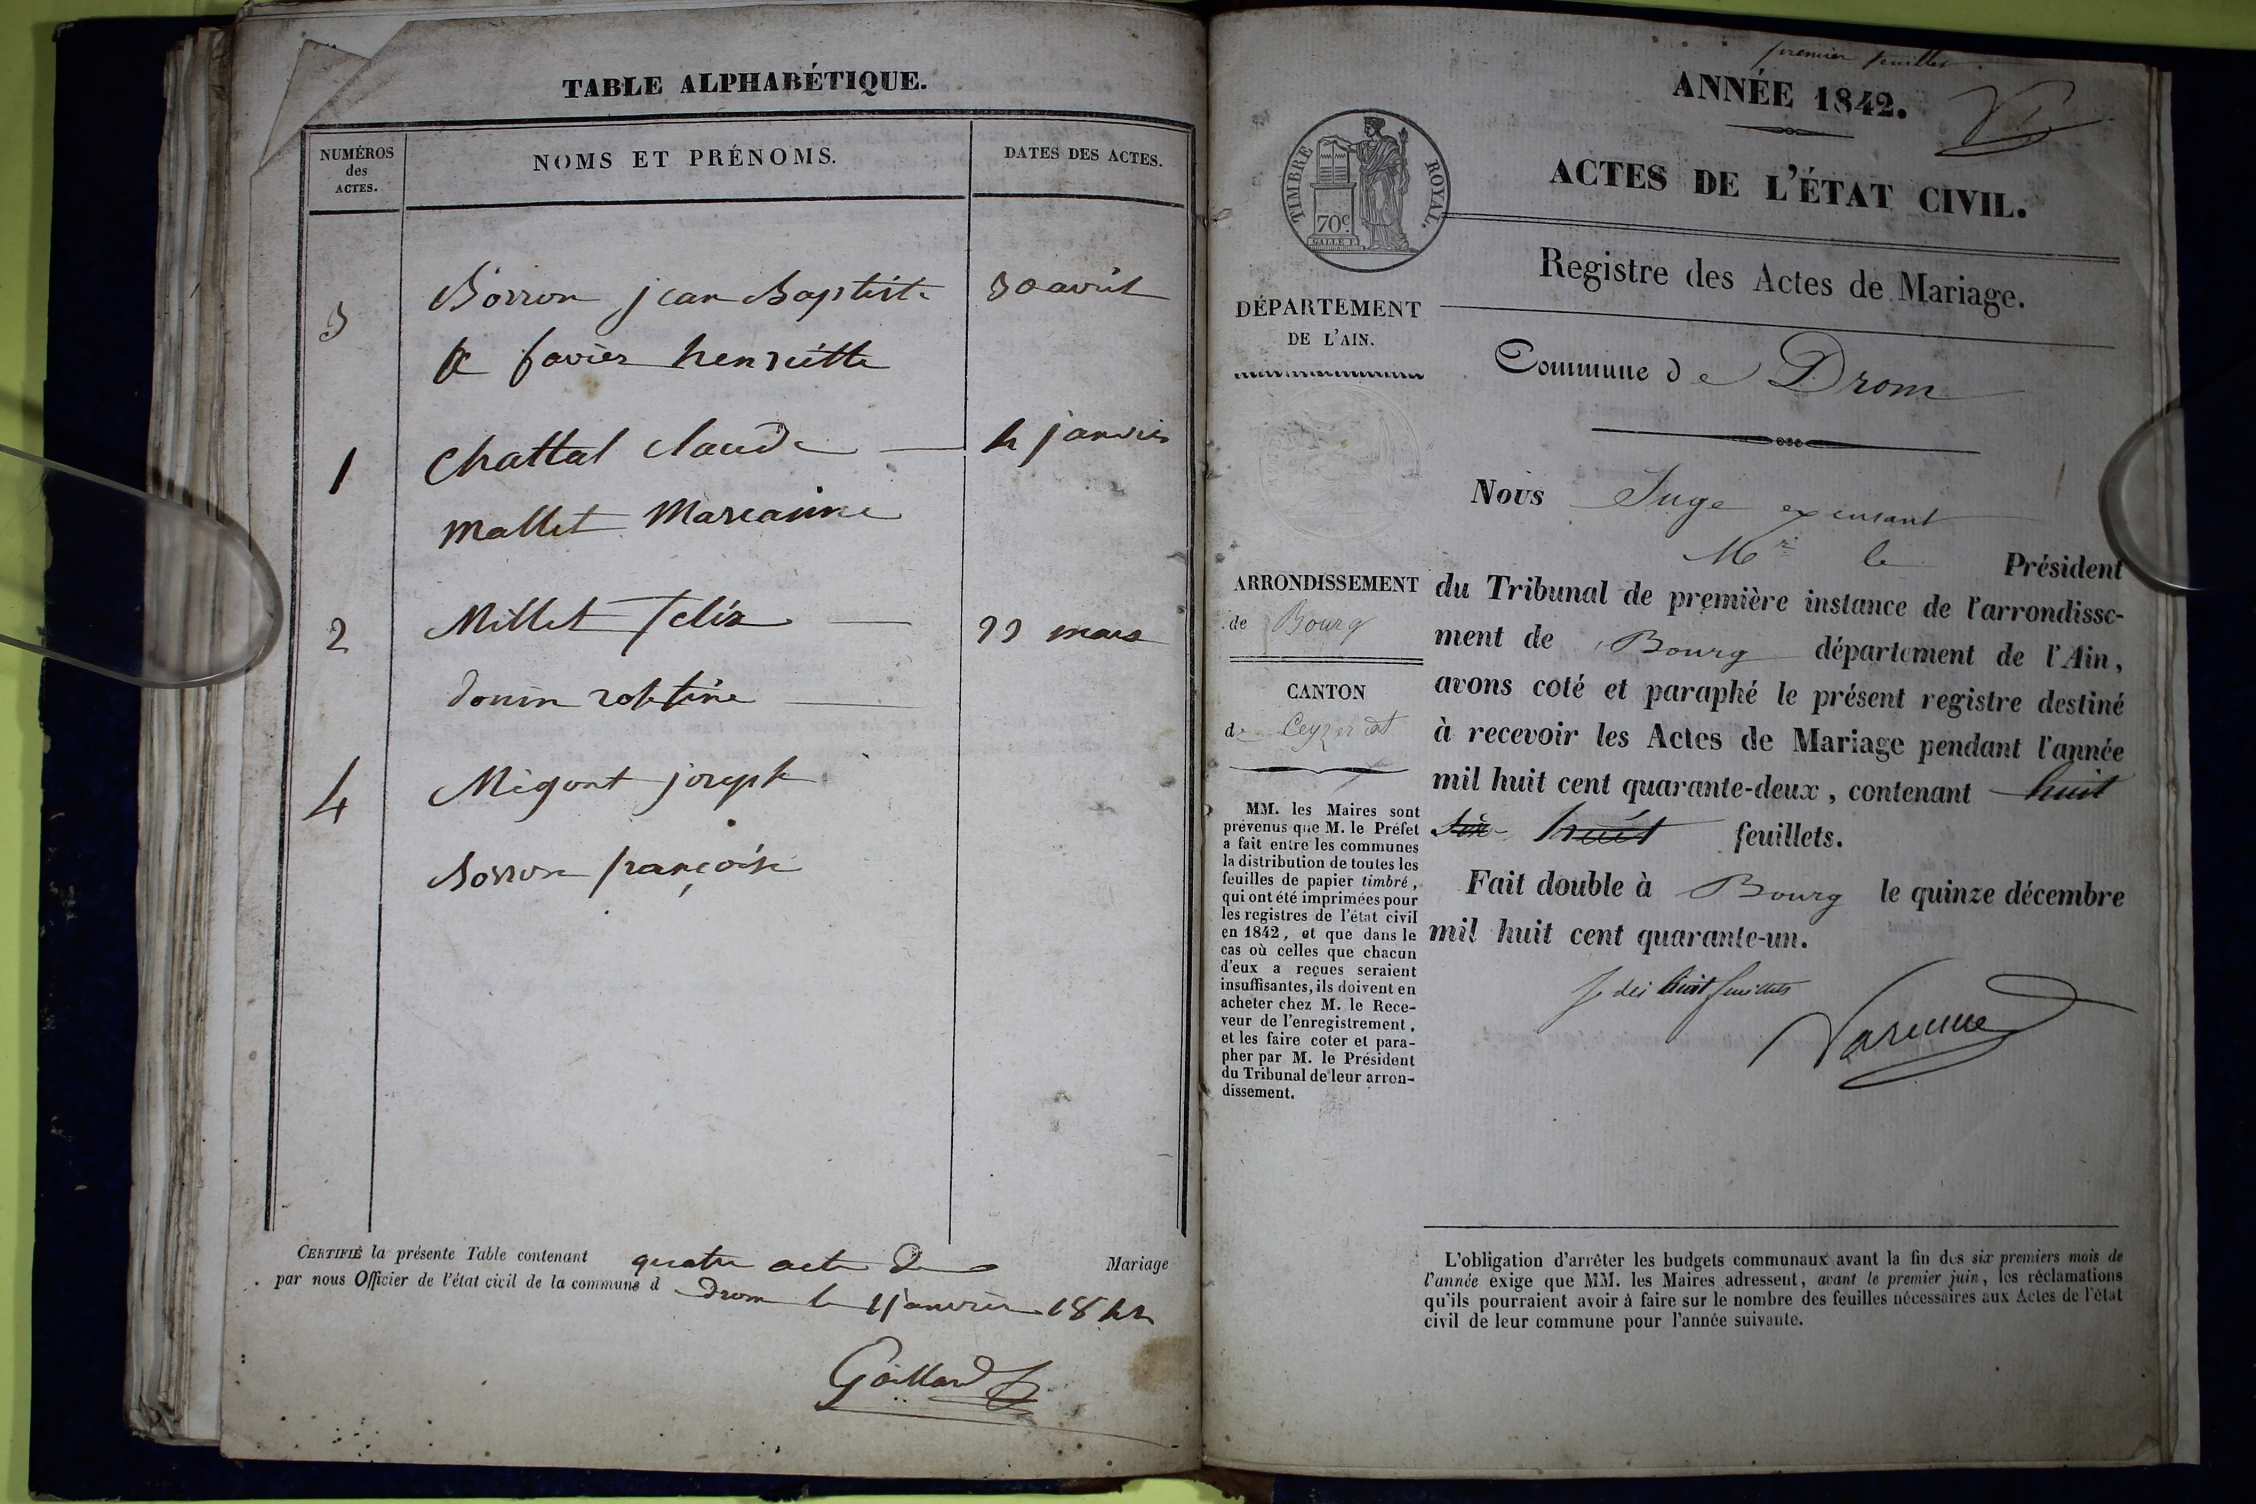 TABLE ALPHABÉTIQUE.
NUMÉROS
des
ACTES.
NOMS ET PRÉNOMS.
DATES DES ACTES.
3 Borron jean Baptiste 30 avril
et favier henriette
1 Chattal claude 4 janvier
mallet Marianne
2 Millet felix 22 mars
donin
4 Migont joseph
Borron françoise
CERTIFIÉ la présente Table contenant quatre acte de Mariage
par nous Officier de l'état civil de la commune d drom le 1 janvier 1842
Gaillard
premier feuillet
ANNÉE 1842.
ACTES DE L'ÉTAT CIVIL.
TIMBRE ROYAL.
70c.
Registre des Actes de Mariage.
DÉPARTEMENT
DE L'AIN.
Commune de Drom
Nous Juge
Mr le Président
ARRONDISSEMENT
de Bourg
CANTON
de Ceyzeriat
du Tribunal de première instance de l'arrondisse-
ment de Bourg département de l'Ain,
avons coté et paraphé le présent registre destiné
à recevoir les Actes de Mariage pendant l'année
mil huit cent quarante-deux, contenant huit
huit feuillets.
Fait double à Bourg le quinze décembre
mil huit cent quarante-un.
huit feuillets
Varenne
MM. les Maires sont
prévenus que M. le Préfet
a fait entre les communes
la distribution de toutes les
feuilles de papier timbré,
qui ont été imprimées pour
les registres de l'état civil
en 1842, et que dans le
cas où celles que chacun
d'eux a reçues seraient
insuffisantes, ils doivent en
acheter chez M. le Rece-
veur de l'enregistrement,
et les faire coter et para-
pher par M. le Président
du Tribunal de leur arron-
dissement.
L'obligation d'arrêter les budgets communaux avant la fin des six premiers mois de
l'année exige que MM. les Maires adressent, avant le premier juin, les réclamations
qu'ils pourraient avoir à faire sur le nombre des feuilles nécessaires aux Actes de l'état
civil de leur commune pour l'année suivante.